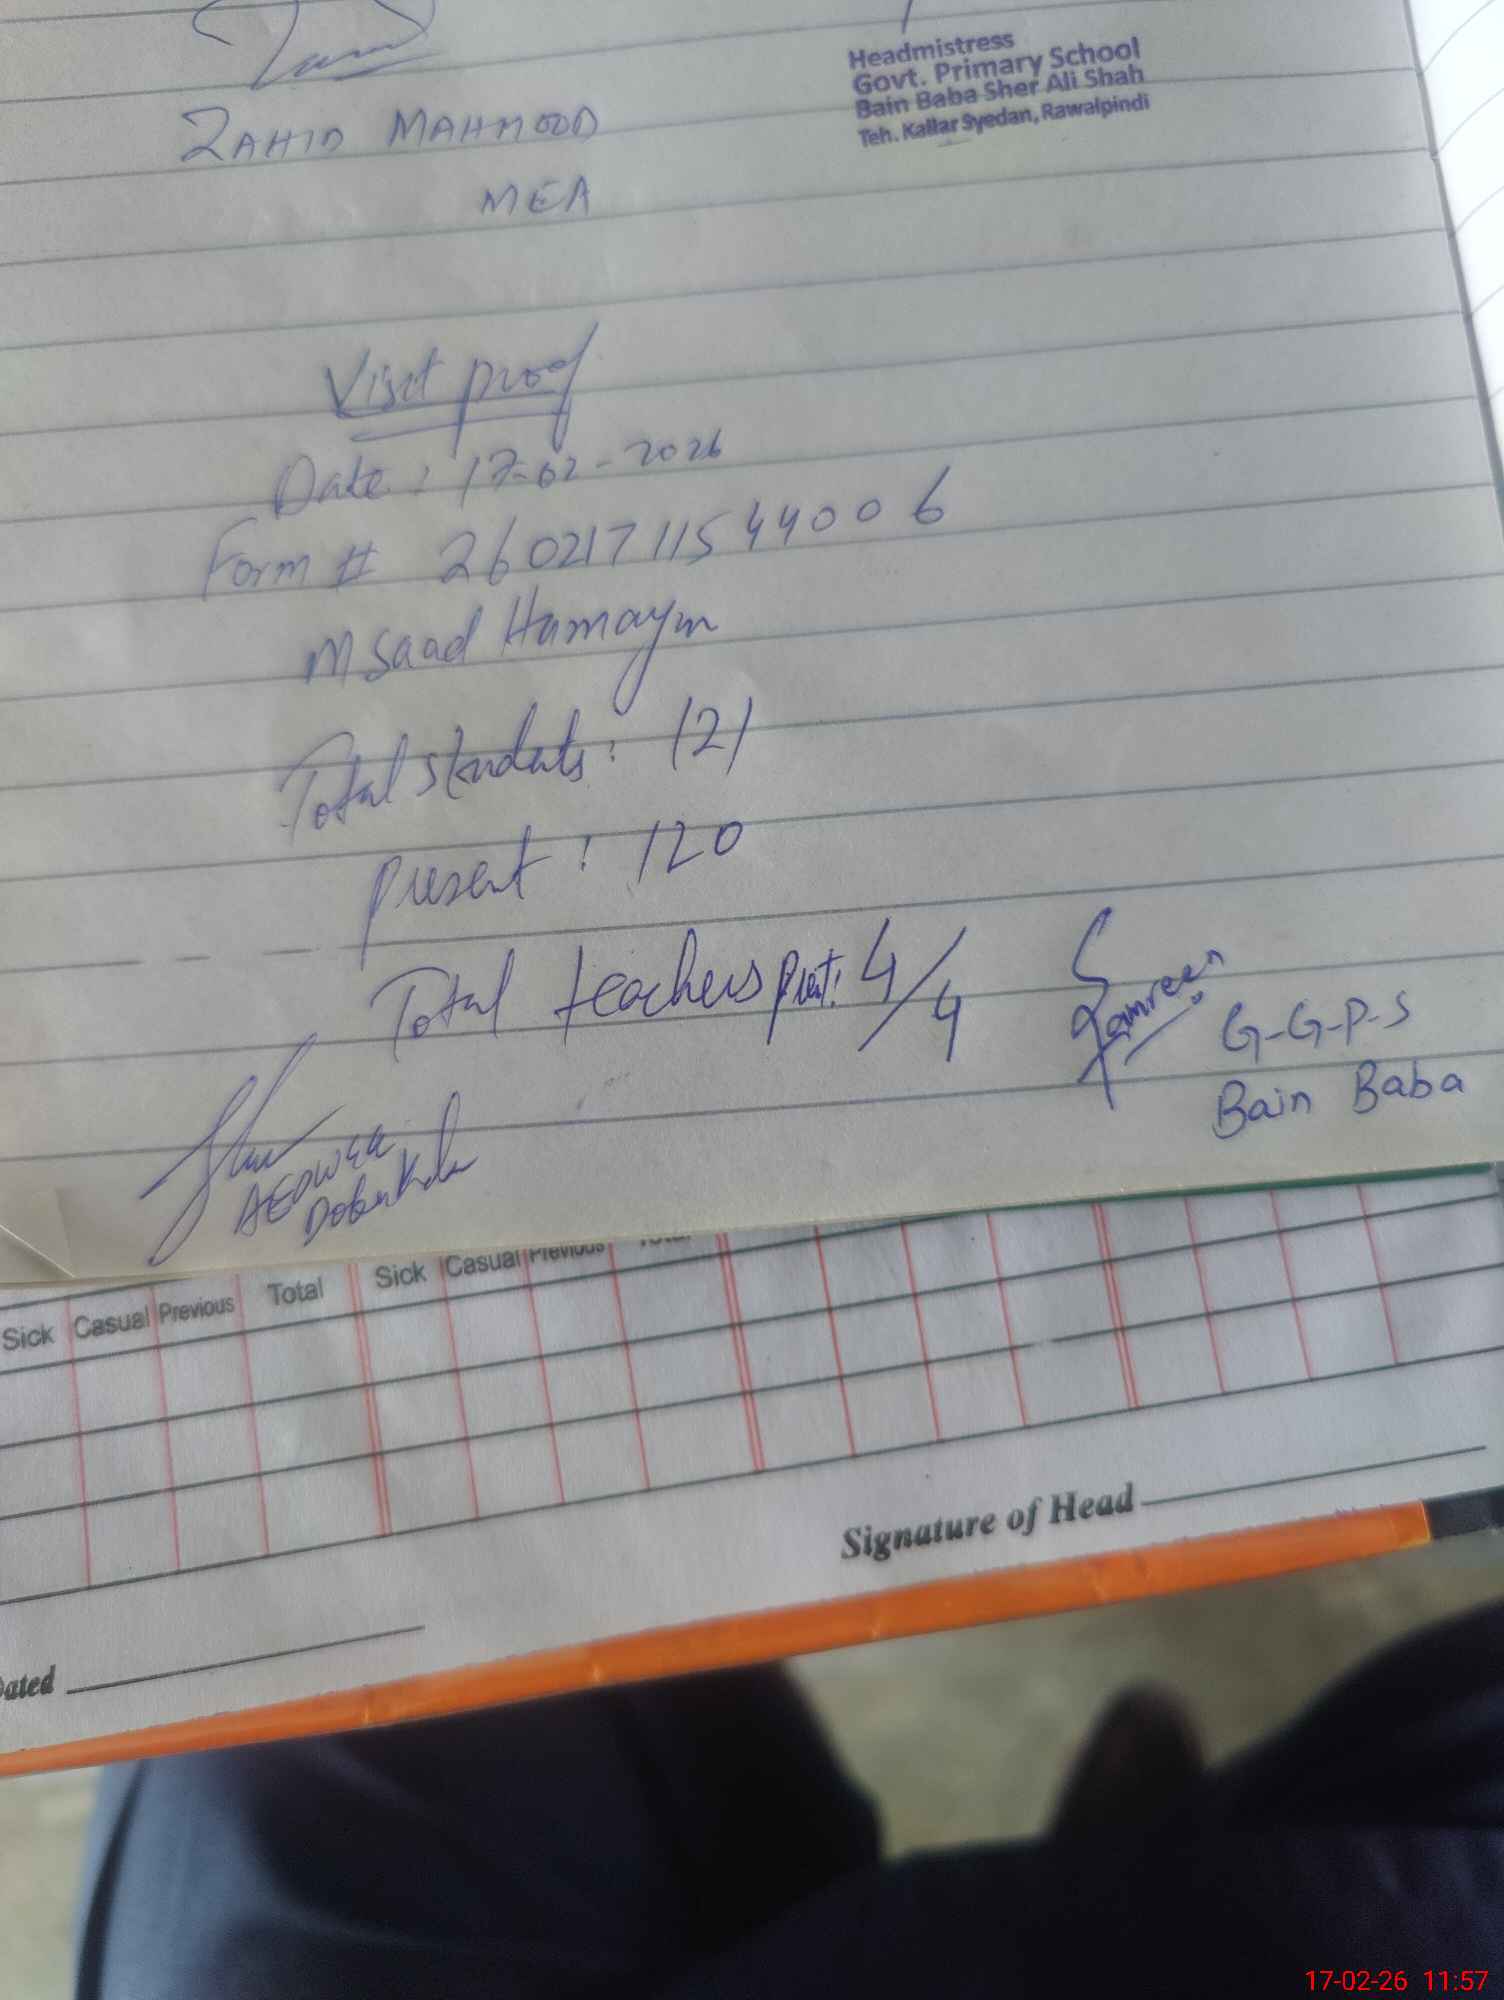 ZAHID MAHMOOD
MEA
Headmistress
Govt. Primary School
Bain Baba Sher Ali Shah
Teh. Kallar Syedan, Rawalpindi
Visit proof
Date: 17-02-2026
Form # 26021711544006
M Saad Hamayun
Total students: 121
Present: 120
Total teachers prest: 4/4
G-G-P-S
Bain Baba
Sick Casual Previous Total Sick Casual Previous Total
Signature of Head
Dated
17-02-26 11:57